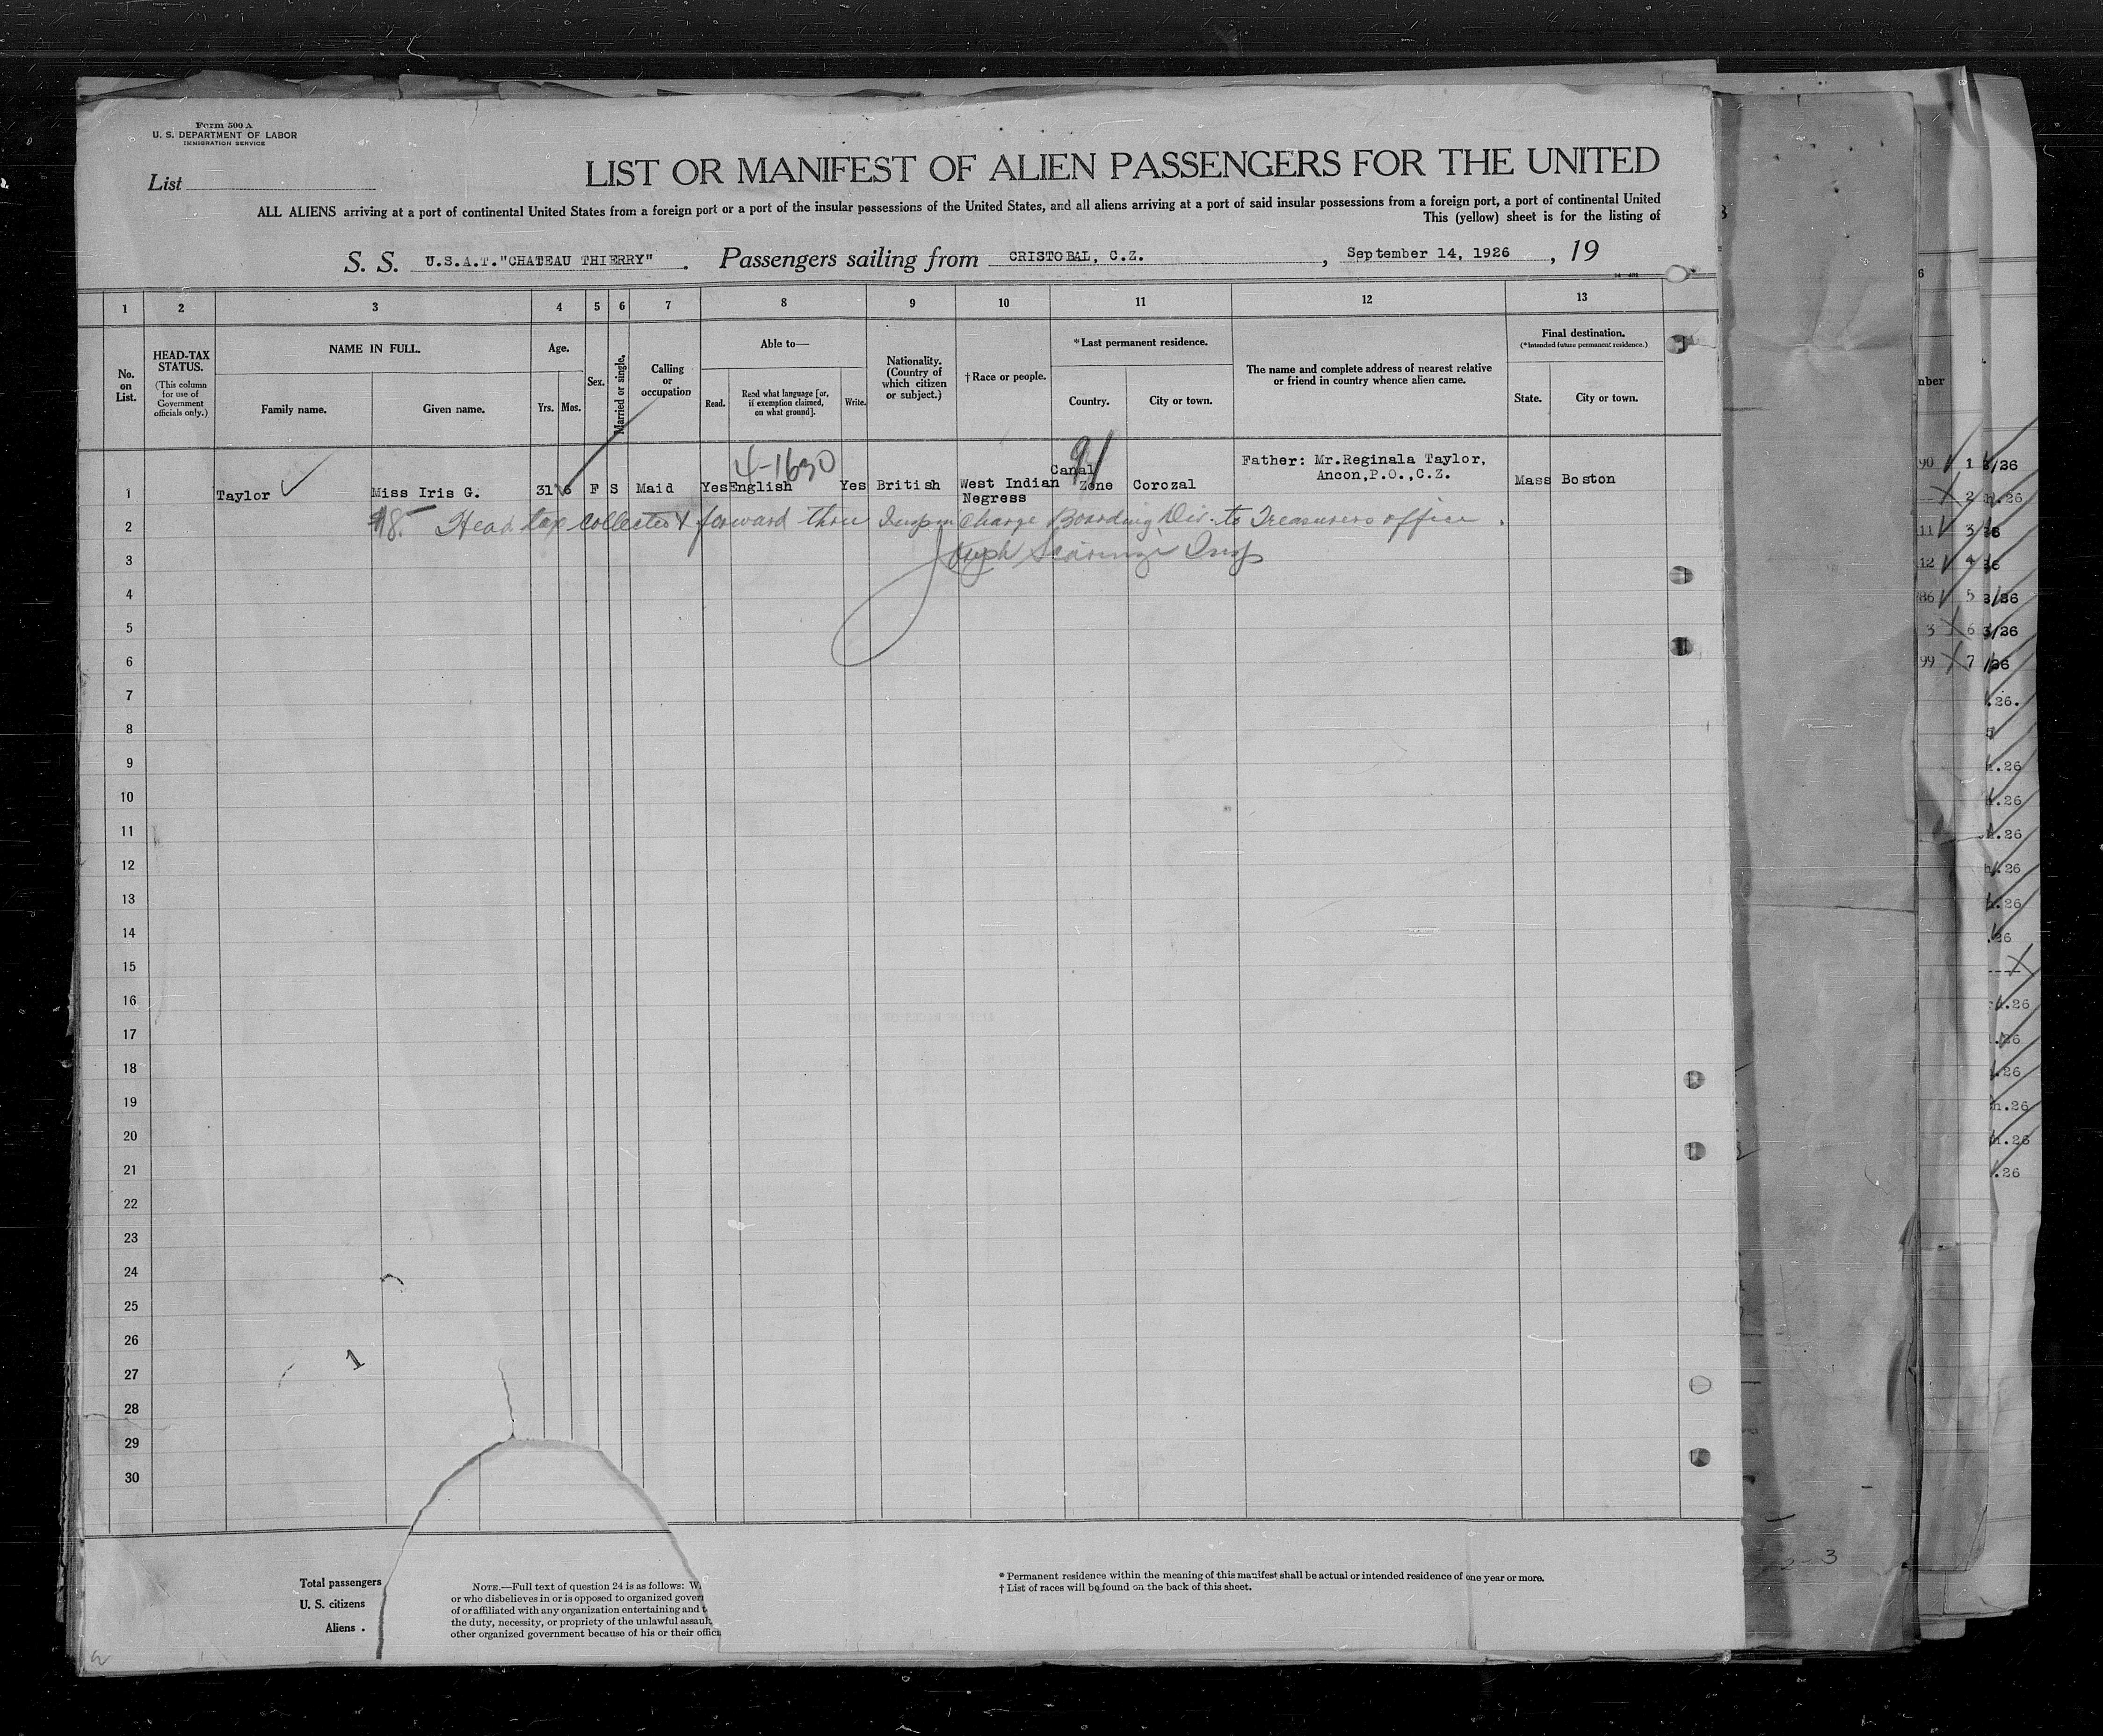 Form 500 A
U. S. DEPARTMENT OF LABOR
IMMIGRATION SERVICE
List
LIST OR MANIFEST OF ALIEN PASSENGERS FOR THE UNITED
ALL ALIENS arriving at a port of continental United States from a foreign port or a port of the insular possessions of the United States, and all aliens arriving at a port of said insular possessions from a foreign port, a port of continental United
This (yellow) sheet is for the listing of
S. S. U.S.A.T."CHATEAU THIERRY" . Passengers sailing from CRISTOBAL, C.Z. , September 14, 1926 , 19
1 2 3 4 5 6 7 8 9 10 11 12 13
No. on List.
HEAD-TAX STATUS.
(This column for use of Government officials only.)
NAME IN FULL.
Family name. Given name.
Age.
Yrs. Mos.
Sex.
Married or single.
Calling or occupation
Able to—
Read. Read what language [or, if exemption claimed, on what ground]. Write.
Nationality. (Country of which citizen or subject.)
†Race or people.
*Last permanent residence.
Country. City or town.
The name and complete address of nearest relative or friend in country whence alien came.
Final destination.
(*Intended future permanent residence.)
State. City or town.
4-1630
91
1 Taylor Miss Iris G. 31 6 F S Maid Yes English Yes British West Indian Negress Canal Zone Corozal Father: Mr.Reginala Taylor, Ancon,P.O.,C.Z. Mass Boston
2 $8. Head tax collected & forward thru Insp in Charge Boarding Div. to Treasurers office.
3 Joseph Scaringi Insp
4
5
6
7
8
9
10
11
12
13
14
15
16
17
18
19
20
21
22
23
24
25
26
27
28
29
30
1
Total passengers
U. S. citizens
Aliens .
NOTE.—Full text of question 24 is as follows:
or who disbelieves in or is opposed to organized
of or affiliated with any organization entertaining and
the duty, necessity, or propriety of the unlawful
other organized government because of his or their
* Permanent residence within the meaning of this manifest shall be actual or intended residence of one year or more.
† List of races will be found on the back of this sheet.